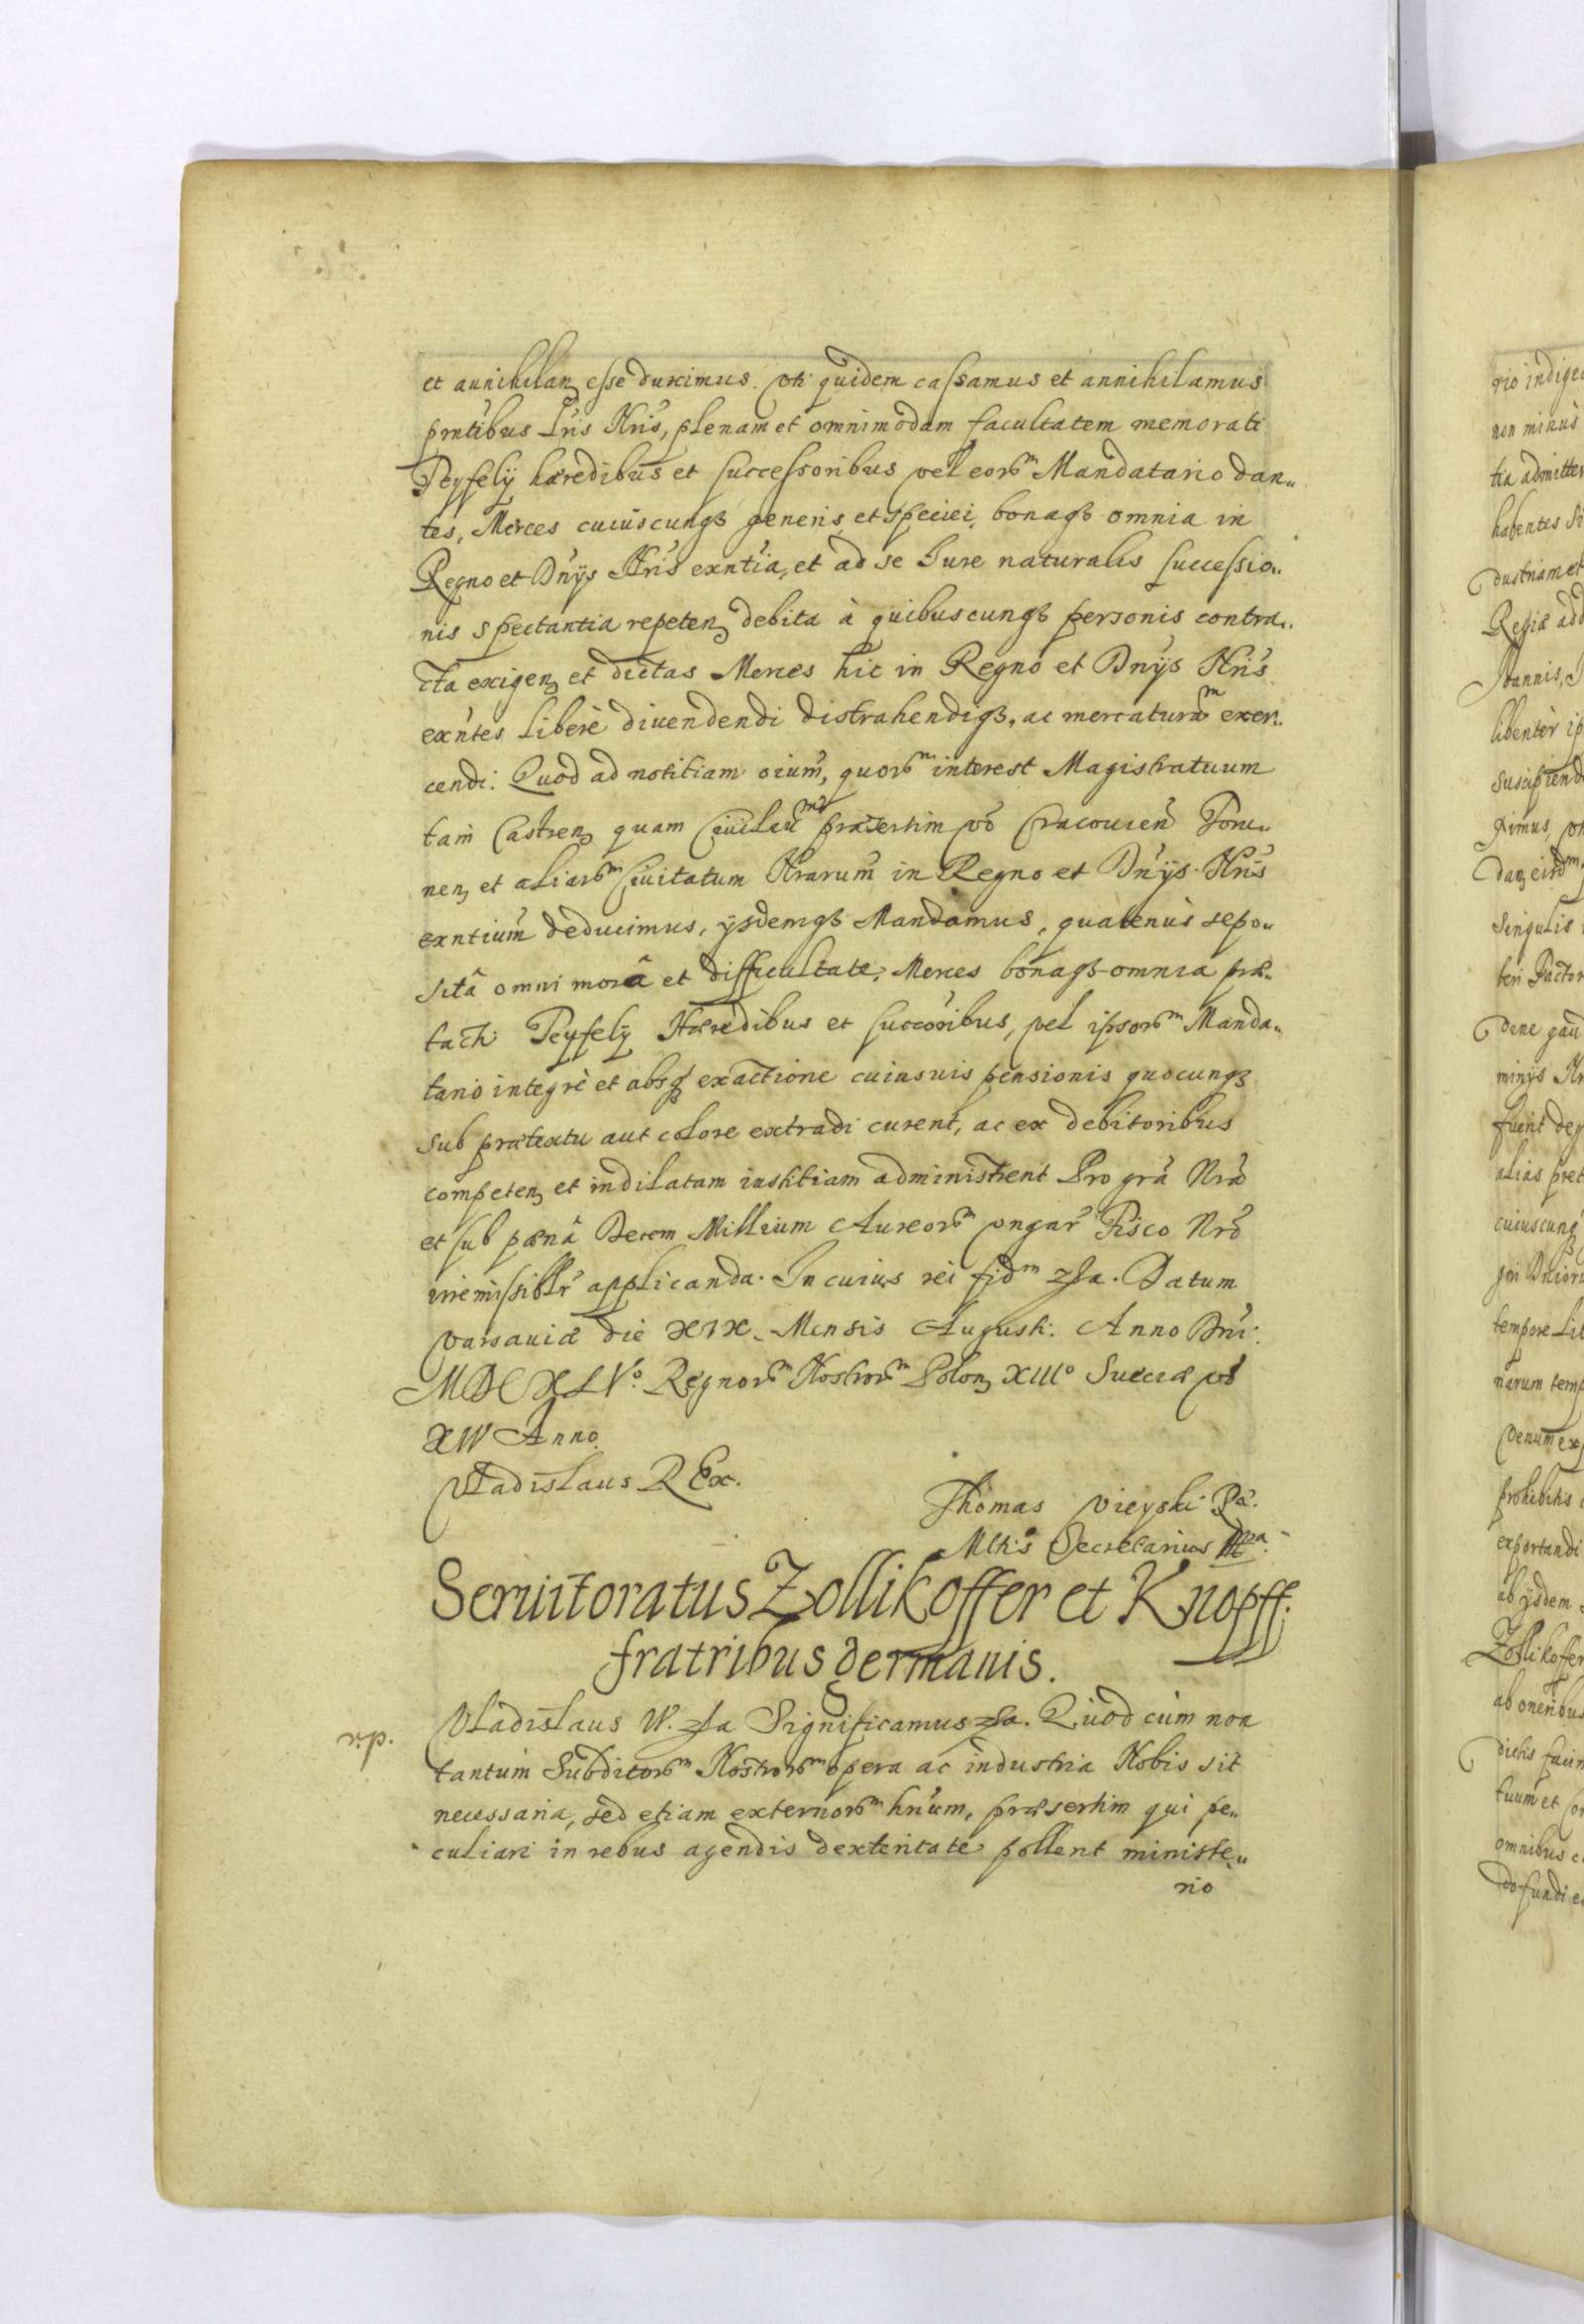 et annihilan esse duximus. vti quidem cassamus et annihilamus
pñtibus Lris Nris, plenam et omnimodam facultatem memorati
Peyfelÿ hæredibus et successoribus vel eorᵐ Mandatario dan„
tes, Merces cuiuscunqȝ generis et speciei, bonaqȝ omnia in
Regno et Dnÿs Nris exntia, et ad se Iure naturalis successio„
nis spectantia repeten debita à quibuscunqȝ personis contra„
cta exigen et dictas Merces hic in Regno et Dnÿs Nris
exntes liberè diuendendi distrahendiqȝ, ac mercaturaᵐ exer„
cendi. Quod ad notitiam oium, quorᵐ interest Magistratuum
tam Castren quam Ciuileu præsertim vo Cracouien Toru„
nen et aliarᵐ Ciuitatum Nrarum in Regno et Dnÿs Nris
exntium deducimus, ÿsdemqȝ Mandamus, quatenùs sepo„
sitâ omni morâ et difficultate, Merces bonaqȝ omnia præ„
tacti Peyfelÿ Hæredibus et succoribus, vel ipsorᵐ Manda„
tario integrè et absqȝ exactione cuiusuis pensionis quocunqȝ
sub prætextu aut colore extradi curent, ac ex debitoribus
competen et indilatam iustitiam administrent Pro gra Nra
et sub pœnâ Decem Millium Aureorᵐ vngar Fisco Nro
irremissiblr applicanda. In cuius rei fidᵐ zſa. Datum
Varsauiæ die XIX Mensis Augusti. Anno Dni.
MDCXLVᵒ. Regnorᵐ Nostrorᵐ Polon XIIIᵒ Sueciæ vo
XIV Anno.
Vladislaus REx.
Thomas Vieyski Ræ.
Mttis Secretarius
Seruitoratus Zollikoffer et Knopff.
fratribus germanis.
r.p.
Vladislaus IV. zſa Significamus zſa. Quod cùm non
tantùm Subditorᵐ Nostrorᵐ opera ac industria Nobis sit
necessaria, sed etiam externorᵐ hnum, præsertim qui pe„
culiari in rebus agendis dexteritate pollent ministe„
rio